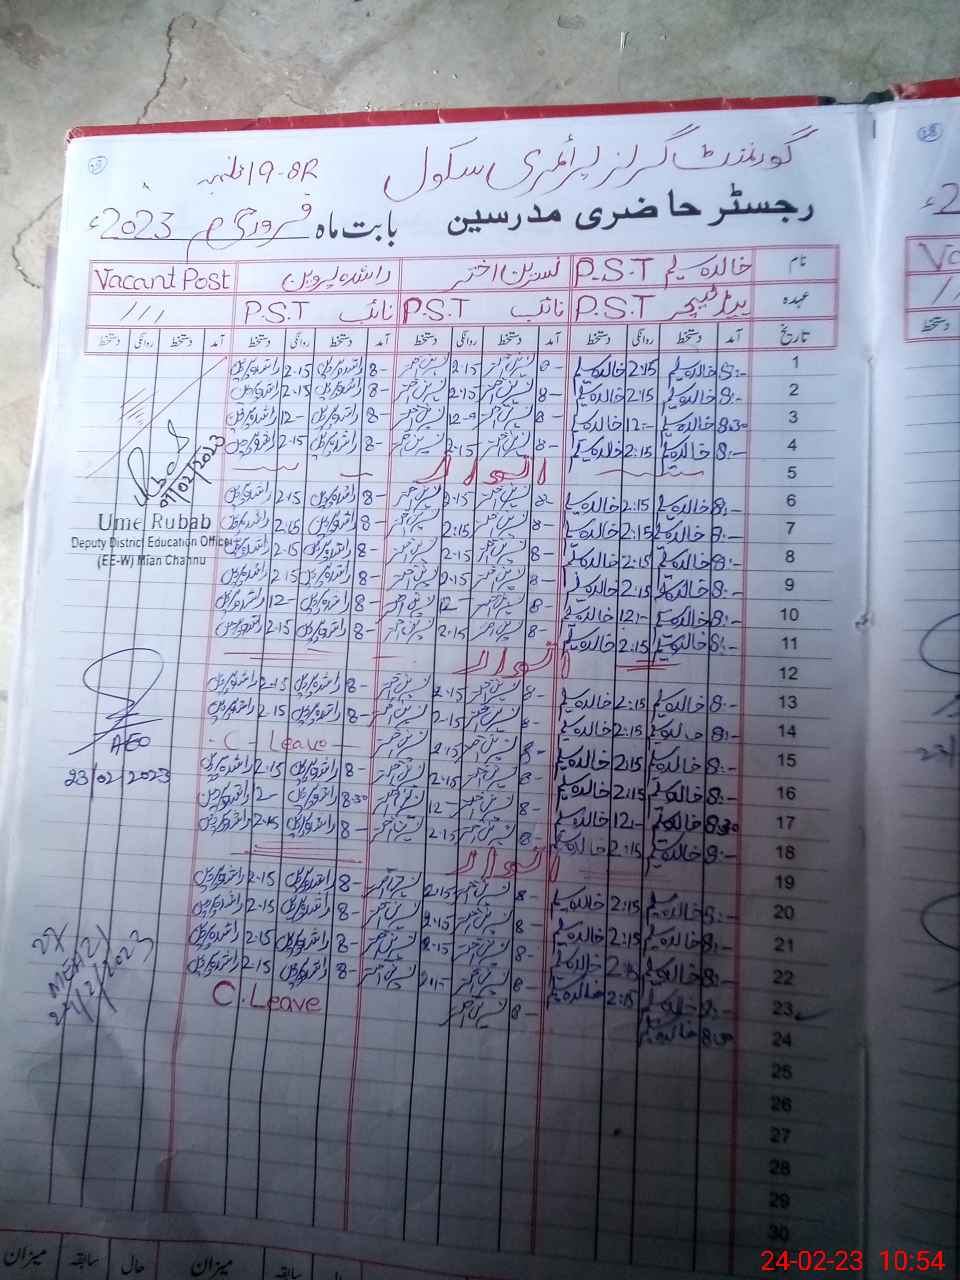 گورنمنٹ گرلز پرائمری سکول 19-8R
رجسٹر حاضری مدرسین بابت ماہ فروری 2023ء
نام خالدہ سلیم P.S.T نسرین اختر راشدہ پروین Vacant Post
عہدہ ہیڈ ٹیچر P.S.T نائب P.S.T نائب P.S.T ///
تاریخ آمد دستخط روانگی دستخط آمد دستخط روانگی دستخط آمد دستخط روانگی دستخط آمد دستخط روانگی دستخط
1 8:- خالدہ سلیم 2:15 خالدہ سلیم 8- نسرین اختر 2.15 نسرین اختر 8- راشدہ پروین 2.15 راشدہ پروین
2 8:- خالدہ سلیم 2:15 خالدہ سلیم 8- نسرین اختر 2.15 نسرین اختر 8- راشدہ پروین 2.15 راشدہ پروین
3 8.30 خالدہ سلیم 12:- خالدہ سلیم 8- نسرین اختر نسرین اختر 8- راشدہ پروین 12- راشدہ پروین
4 8:- خالدہ سلیم 2:15 خالدہ سلیم 8- نسرین اختر 2.15 نسرین اختر 8- راشدہ پروین 2.15 راشدہ پروین
5 اتوار
07/02/2023
6 8:- خالدہ سلیم 2:15 خالدہ سلیم 8- نسرین اختر 2.15 نسرین اختر 8- راشدہ پروین 2.15 راشدہ پروین
Ume Rubab
7 8:- خالدہ سلیم 2:15 خالدہ سلیم 8- نسرین اختر 2.15 نسرین اختر 8- راشدہ پروین 2.15 راشدہ پروین
Deputy District Education Officer
8 8:- خالدہ سلیم 2:15 خالدہ سلیم 8- نسرین اختر 2.15 نسرین اختر 8- راشدہ پروین 2.15 راشدہ پروین
(EE-W) Mian Channu
9 8:- خالدہ سلیم 2:15 خالدہ سلیم 8- نسرین اختر 2.15 نسرین اختر 8- راشدہ پروین 2.15 راشدہ پروین
10 8:- خالدہ سلیم 12:- خالدہ سلیم 8- نسرین اختر 12- نسرین اختر 8- راشدہ پروین 12- راشدہ پروین
11 8:- خالدہ سلیم 2:15 خالدہ سلیم 8- نسرین اختر 2.15 نسرین اختر 8- راشدہ پروین 2.15 راشدہ پروین
12 اتوار
13 8:- خالدہ سلیم 2:15 خالدہ سلیم 8- نسرین اختر 2.15 نسرین اختر 8- راشدہ پروین 2.15 راشدہ پروین
14 8:- خالدہ سلیم 2:15 خالدہ سلیم 8- نسرین اختر 2.15 نسرین اختر 8- راشدہ پروین 2.15 راشدہ پروین
AEO
15 8:- خالدہ سلیم 2:15 خالدہ سلیم 8- نسرین اختر 2.15 نسرین اختر C- Leave
23/02/2023
16 8:- خالدہ سلیم 2:15 خالدہ سلیم 8- نسرین اختر 2.15 نسرین اختر 8- راشدہ پروین 2.15 راشدہ پروین
17 8.30 خالدہ سلیم 12:- خالدہ سلیم 8- نسرین اختر 12- نسرین اختر 8.30 راشدہ پروین راشدہ پروین
18 8:- خالدہ سلیم 2:15 خالدہ سلیم 8- نسرین اختر 2.15 نسرین اختر 8- راشدہ پروین 2.15 راشدہ پروین
19 اتوار
20 8:- خالدہ سلیم 2:15 خالدہ سلیم 8- نسرین اختر 2.15 نسرین اختر 8- راشدہ پروین 2.15 راشدہ پروین
21 8:- خالدہ سلیم 2:15 خالدہ سلیم 8- نسرین اختر 2.15 نسرین اختر 8- راشدہ پروین 2.15 راشدہ پروین
22 8:- خالدہ سلیم خالدہ سلیم 8- نسرین اختر 2.15 نسرین اختر 8- راشدہ پروین 2.15 راشدہ پروین
23 8:- خالدہ سلیم 2:15 خالدہ سلیم 8- نسرین اختر نسرین اختر 8- راشدہ پروین 2.15 راشدہ پروین
24 خالدہ سلیم 8- نسرین اختر C.Leave
25
26
27
28
29
30
میزان سابقہ حال میزان سابقہ
24-02-23 10:54